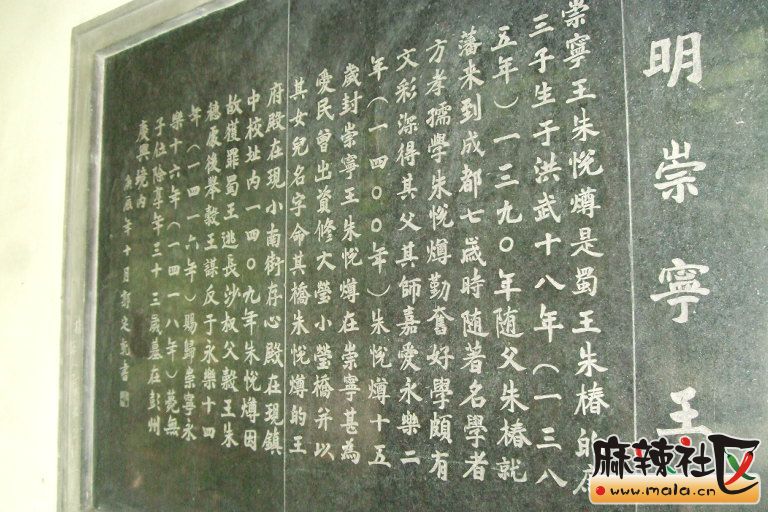 明崇寧王
崇寧王朱悅燇是蜀王朱椿的庶
三子生于洪武十八年（一三八
五年）一三九〇年随父朱椿就
藩来到成都七歲時随著名學者
方孝孺學朱悅燇勤奮好學頗有
文彩深得其父其師嘉愛永樂二
年（一四〇〇年）朱悅燇十五
歲封崇寧王朱悅燇在崇寧甚為
愛民曾出資修大瑩小瑩橋并以
其女兒名字命其橋朱悅燇的王
府殿在現小南街存心殿在現鎮
中校址内一四〇九年朱悅燇因
故獲罪蜀王逃長沙叔父穀王朱
橞處後举穀王謀反于永樂十四
年（一四一六年）賜歸崇寧永
樂十六年（一四一八年）薨無
子位除享年三十三歲墓在彭州
慶興境内
庚辰年十月郭定乾書
麻辣社区
www.mala.cn